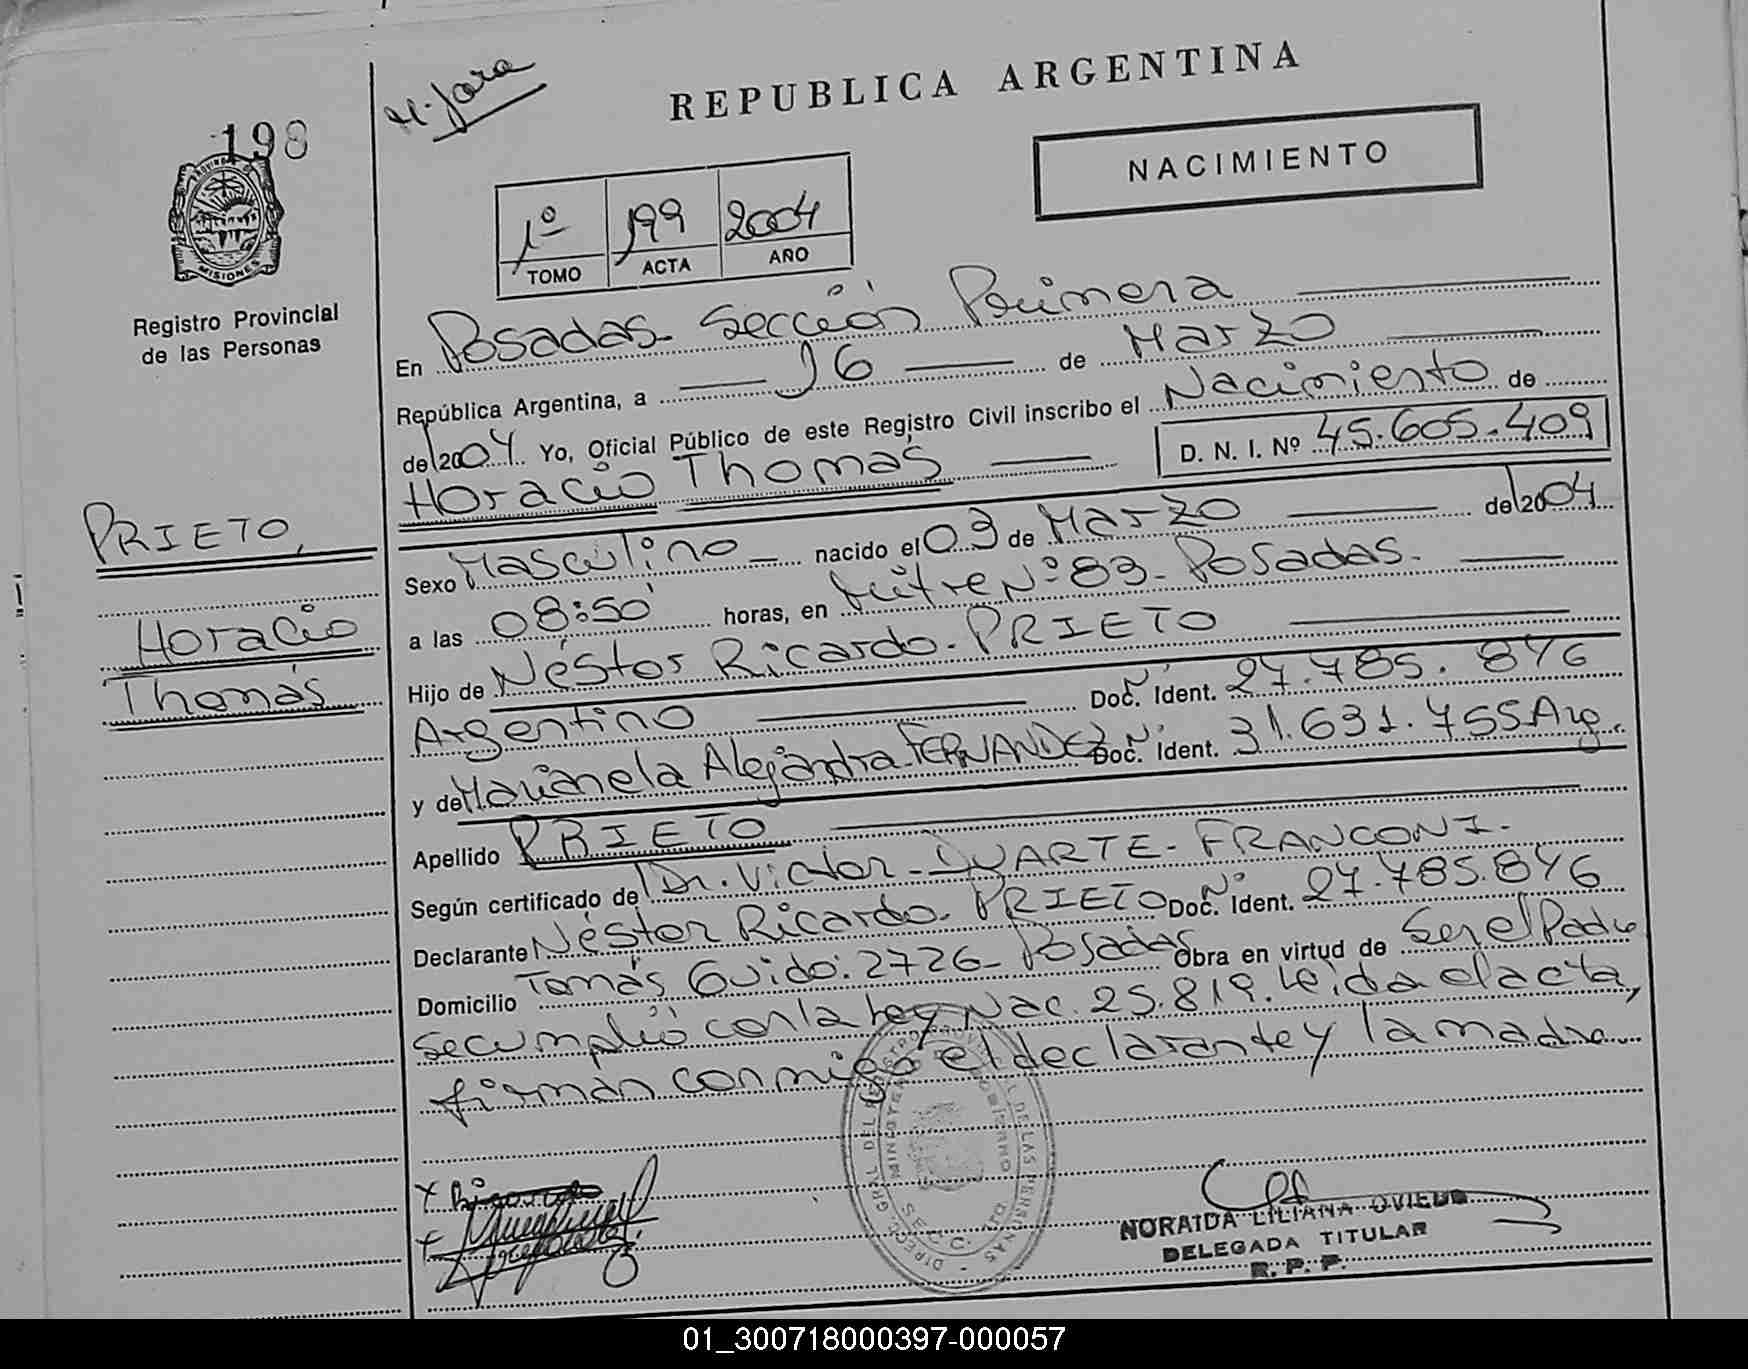 H. Jara
REPUBLICA ARGENTINA
198
NACIMIENTO
1º 199 2004
TOMO ACTA AÑO
MISIONES
Registro Provincial
de las Personas
En Posadas - Sección Primera
República Argentina, a 16 de Marzo
de 2004 Yo, Oficial Público de este Registro Civil inscribo el Nacimiento de
Horacio Thomás D. N. I. Nº 45.605.409
PRIETO,
Horacio
Thomás
Sexo Masculino nacido el 03 de Marzo de 2004
a las 08:50' horas, en Mitre Nº 83 - Posadas.
Hijo de Néstor Ricardo - PRIETO
Argentino Doc. Ident. 27.785.876
y de Marianela Alejandra FERNANDEZ Doc. Ident. 31.631.755 Arg.
Apellido PRIETO
Según certificado de Dr. Victor - DUARTE - FRANCONI.
Declarante Néstor Ricardo - PRIETO Doc. Ident. 27.785.876
Domicilio Tomás Guido: 2726 - Posadas Obra en virtud de Ser el Padre
Se cumplió con la Ley Nac. 25.819. Leída el acta,
firman conmigo el declarante y la madre
NORAIDA LILIANA OVIEDO
DELEGADA TITULAR
R. P. P.
01_300718000397-000057